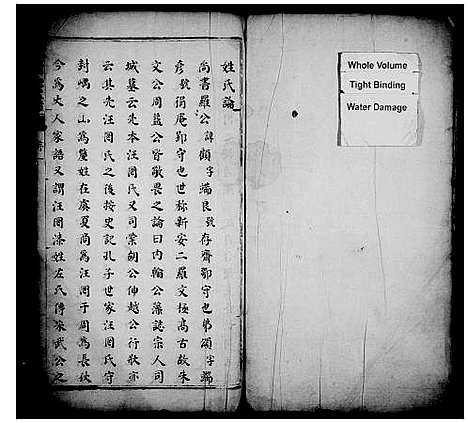 姓氏論
尚書羅公諱願字端良號存齋鄂守也弟頌字端
彥號狷庵郢守也世稱新安二羅文極高古故朱
文公周益公皆敬畏之論曰内翰公藻誌宗人司
城墓云先本汪罔氏又司業胡公伸越公行狀亦
云其先汪罔氏之後按史記孔子世家汪罔氏守
封嵎之山為釐姓在虞夏商為汪罔于周為長狄
今為大人家語又謂汪罔漆姓左氏傳宋武公之
Whole Volume
Tight Binding
Water Damage